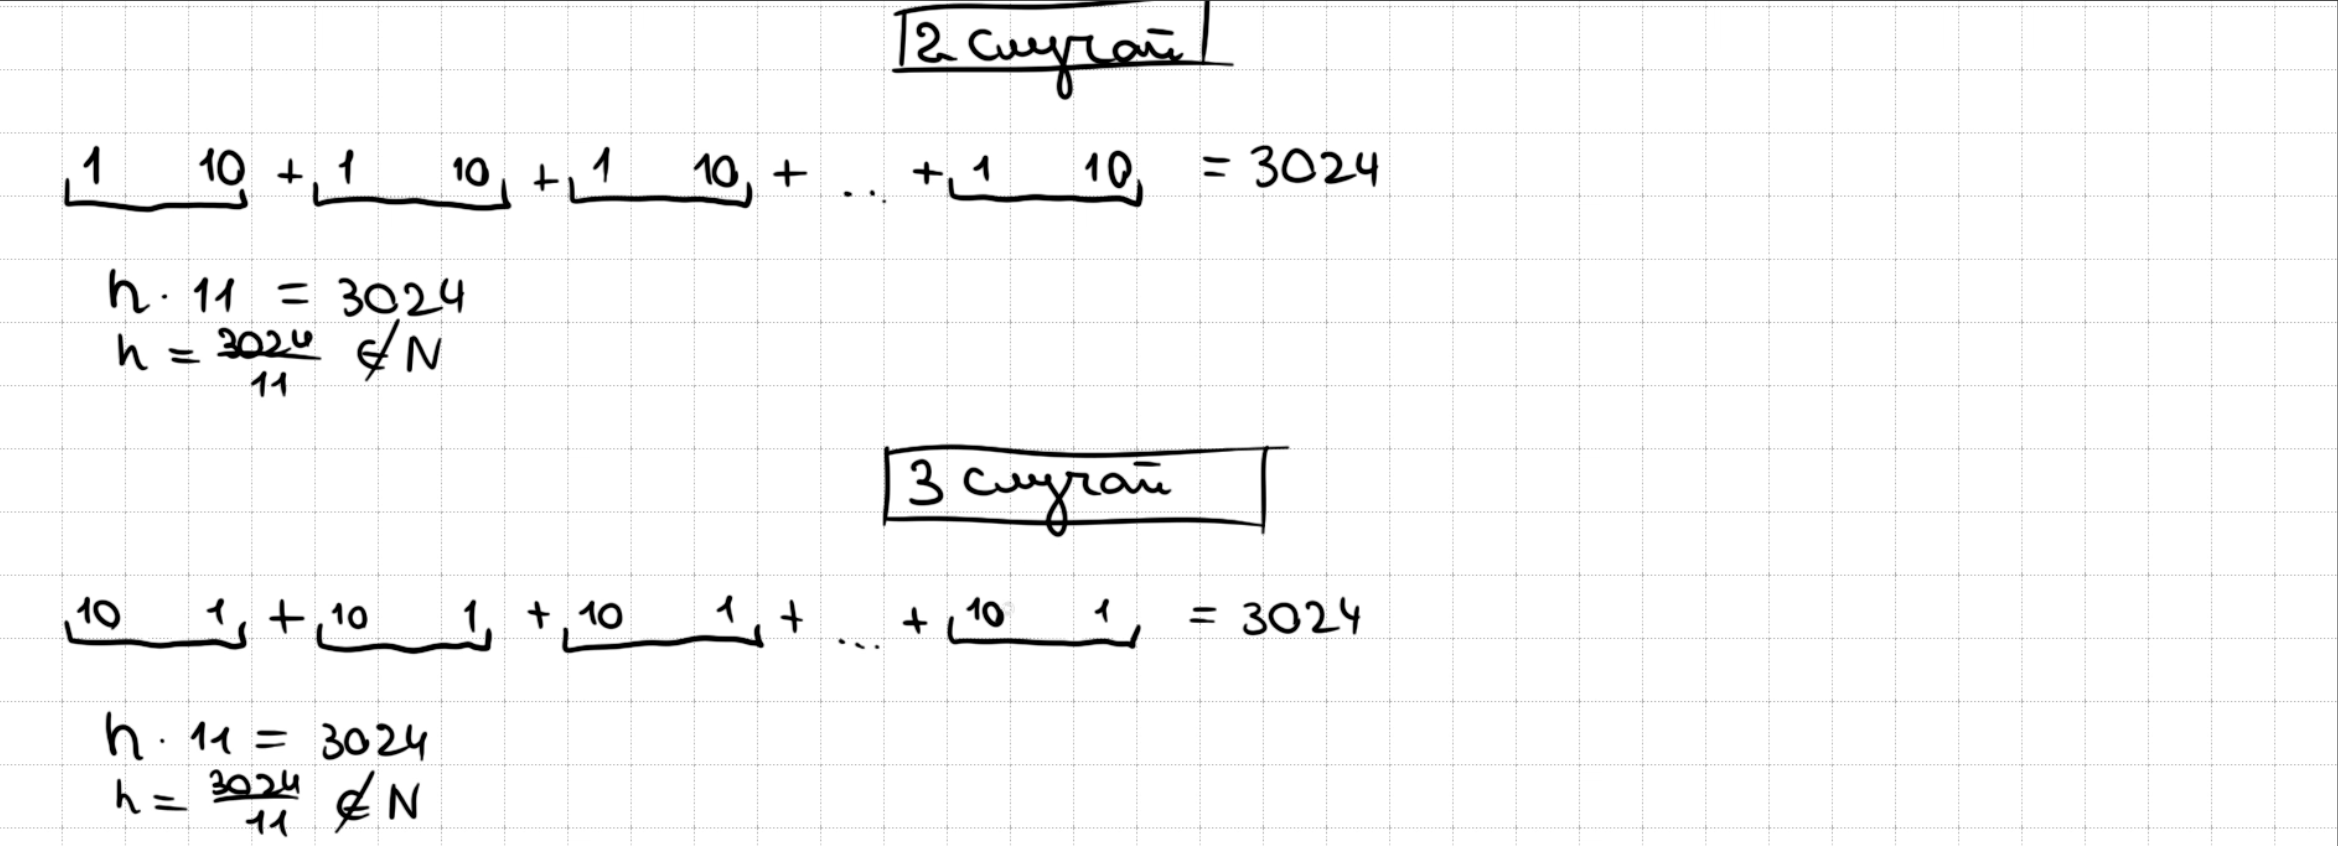 2 случай
1 10 + 1 10 + 1 10 + ... + 1 10 = 3024
n · 11 = 3024
n = 3024/11 ∉ N
3 случай
10 1 + 10 1 + 10 1 + ... + 10 1 = 3024
n · 11 = 3024
n = 3024/11 ∉ N